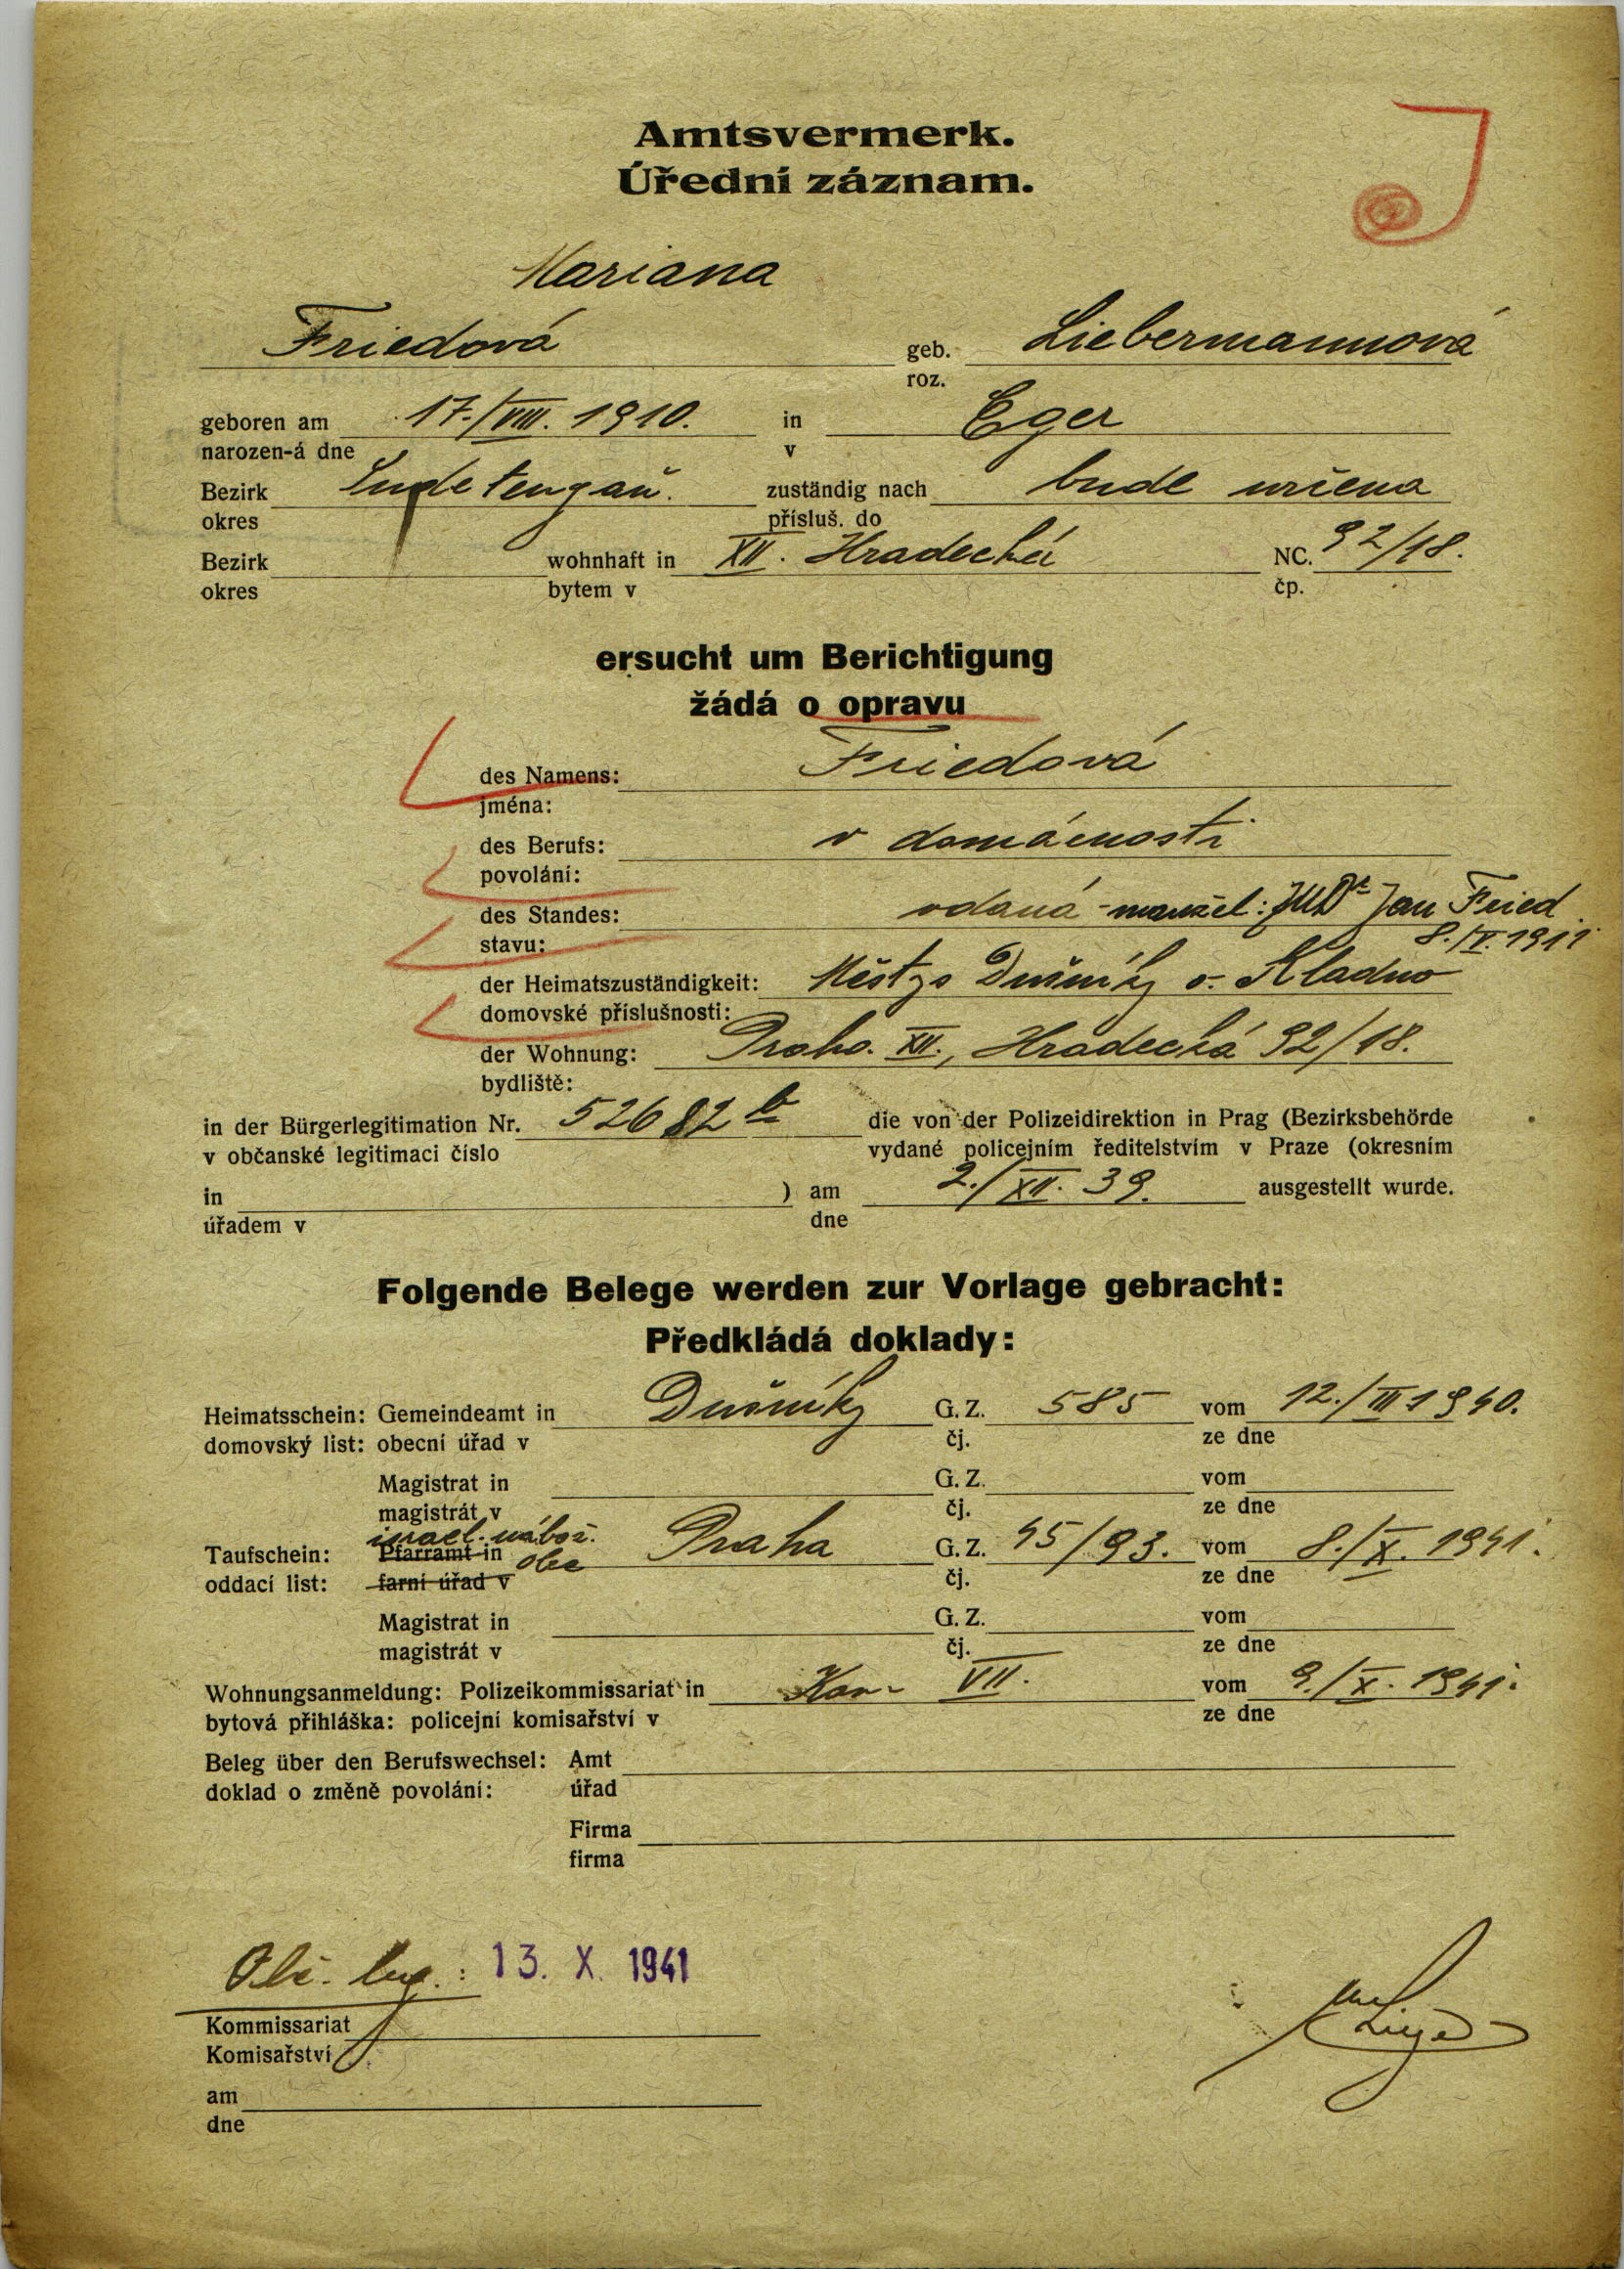 J
Amtsvermerk.
Úřední záznam.
Mariana
Friedová geb. Liebermannová
roz.
geboren am 17./VIII. 1910. in Eger
narozen-á dne v
Bezirk Sudetengau. zuständig nach bude určena
okres přísluš. do
Bezirk wohnhaft in XII. Hradecká NC. 92/18.
okres bytem v čp.
ersucht um Berichtigung
žádá o opravu
des Namens: Friedová
jména:
des Berufs: v domácnosti
povolání:
des Standes: vdaná - manžel: JUDr Jan Fried
stavu: 8./V. 1911
der Heimatszuständigkeit: Městys Dušníky o. Kladno
domovské příslušnosti:
der Wohnung: Praha XII., Hradecká 92/18.
bydliště:
in der Bürgerlegitimation Nr. 52682 die von der Polizeidirektion in Prag (Bezirksbehörde
v občanské legitimaci číslo vydané policejním ředitelstvím v Praze (okresním
in ) am 2./XII. 39. ausgestellt wurde.
úřadem v dne
Folgende Belege werden zur Vorlage gebracht:
Předkládá doklady:
Heimatsschein: Gemeindeamt in Dušníky G.Z. 585 vom 12./III 1940.
domovský list: obecní úřad v čj. ze dne
Magistrat in G.Z. vom
magistrát v čj. ze dne
israel. nábož.
Taufschein: Pfarramt in obec Praha G.Z. 45/93. vom 8./X. 1941.
oddací list: farní úřad v čj. ze dne
Magistrat in G.Z. vom
magistrát v čj. ze dne
Wohnungsanmeldung: Polizeikommissariat in Kom. VII. vom 9./X. 1941.
bytová přihláška: policejní komisařství v ze dne
Beleg über den Berufswechsel: Amt
doklad o změně povolání: úřad
Firma
firma
Obč. leg.: 13. X. 1941
Kommissariat
Komisařství
am
dne